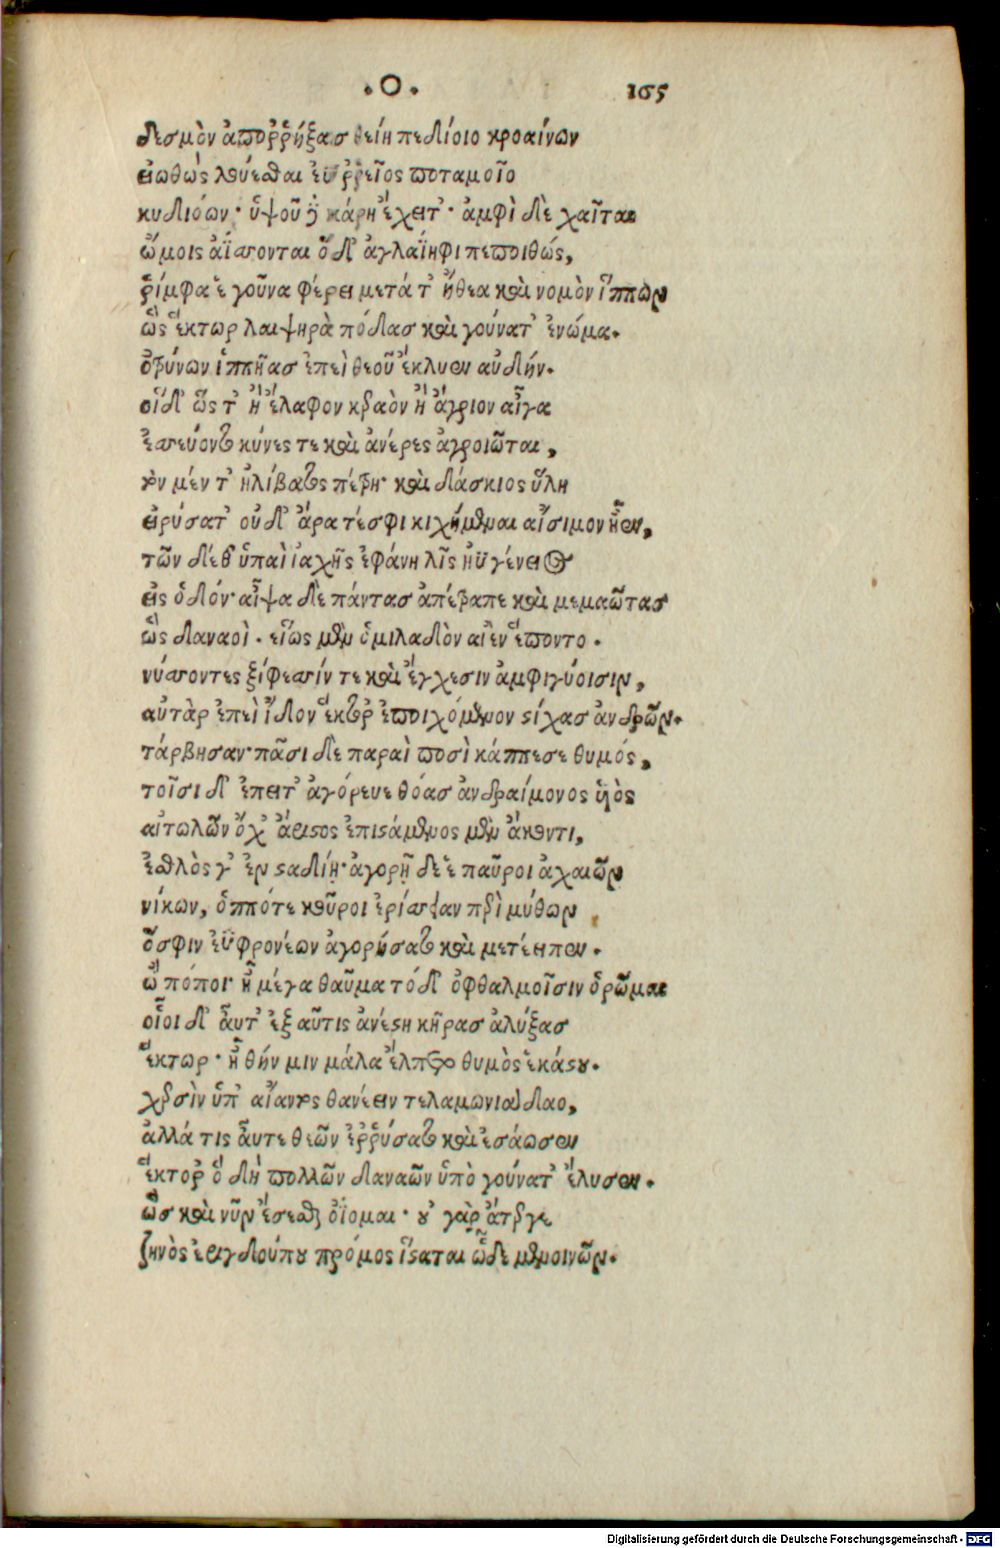 .Ο. 165
δεσμὸν ἀποῤῥήξας θείη πεδίοιο κροαίνων
εἰωθὼς λούεσθαι ἐϋῤῥεῖος ποταμοῖο
κυδιόων· ὑψοῦ δὲ κάρη ἔχει τ'· ἀμφὶ δὲ χαῖται
ὤμοις ἀΐσσονται ὅ δ' ἀγλαΐηφι πεποιθώς,
ῥίμφα ἑ γοῦνα φέρει μετά τ' ἤθεα καὶ νομὸν ἵππων
ὣς ἕκτωρ λαιψηρὰ πόδας καὶ γούνατ' ἐνώμα.
ὀτρύνων ἱππῆας ἐπεὶ θεοῦ ἔκλυεν αὐδήν.
οἵ δ' ὥς τ' ἢ ἔλαφον κεραὸν ἢ ἄγριον αἶγα
ἐσσεύοντο κύνες τε καὶ ἀνέρες ἀγροιῶται,
τὸν μέν τ' ἠλίβατος πέτρη· καὶ δάσκιος ὕλη
εἰρύσατ' οὐ δ' ἄρα τέ σφι κιχήμεναι αἴσιμον ἦεν,
τῶν δέ θ' ὑπαὶ ἰαχῆς ἐφάνη λῖς ἠϋγένειος
εἰς ὁδόν· αἶψα δὲ πάντας ἀπέτραπε καὶ μεμαῶτας
ὣς δαναοὶ. εἵως μὲν ὁμιλαδὸν αἰὲν ἕποντο.
νύσσοντες ξίφεσσίν τε καὶ ἔγχεσιν ἀμφιγύοισιν,
αὐτὰρ ἐπεὶ ἴδον ἕκτορ' ἐποιχόμενον στίχας ἀνδρῶν.
τάρβησαν· πᾶσι δὲ παραὶ ποσὶ κάππεσε θυμός,
τοῖσι δ' ἔπειτ' ἀγόρευε θόας ἀνδραίμονος υἱὸς
αἰτωλῶν ὄχ' ἄριστος ἐπιστάμενος μὲν ἄκοντι,
ἐσθλὸς γ' ἐν σταδίῃ· ἀγορῇ δέ ἑ παῦροι ἀχαιῶν
νίκων, ὁππότε κοῦροι ἐρίσσειαν περὶ μύθων
ὅ σφιν ἐϋφρονέων ἀγορήσατο καὶ μετέειπεν.
ὢ πόποι· ἦ μέγα θαῦμα τόδ' ὀφθαλμοῖσιν ὁρῶμαι
οἷοι δ' αὖτ' ἐξαῦτις ἀνέστη κῆρας ἀλύξας
ἕκτωρ· ἦ θήν μιν μάλα ἔλπετο θυμὸς ἑκάστου.
χερσὶν ὑπ' αἴαντος θανέειν τελαμωνιάδαο,
ἀλλά τις αὖτε θεῶν ἐῤῥύσατο καὶ ἐσάωσεν
ἕκτορ' ὃ δὴ πολλῶν δαναῶν ὑπὸ γούνατ' ἔλυσεν.
ὣς καὶ νῦν ἔσεσθαι ὀΐομαι· οὐ γὰρ ἄτερ γε
ζηνὸς ἐριγδούπου πρόμος ἵσταται ὧδε μενοινῶν.
Digitalisierung gefördert durch die Deutsche Forschungsgemeinschaft - DFG